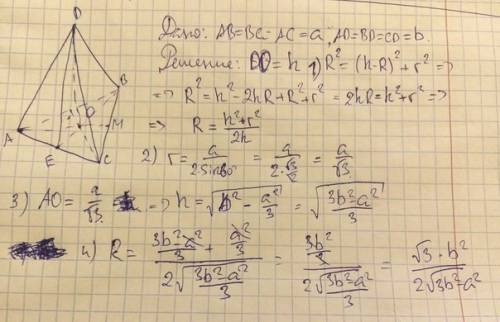 D
B
A
O
M
E
C
Дано: AB=BC=AC=a, AD=BD=CD=b.
Решение: DO=h 1) R²=(h-R)²+r² =>
=> R²=h²-2hR+R²+r² = 2hR=h²+r² =>
=> R = (h²+r²)/(2h)
2) r = a/(2·sin60°) = a/(2·√3/2) = a/√3
3) AO = a/√3 => h = √(b² - a²/3) = √((3b²-a²)/3)
4) R = ((3b²-a²)/3 + a²/3)/(2√((3b²-a²)/3)) = (3b²/3)/(2√((3b²-a²)/3)) = (√3·b²)/(2√(3b²-a²))